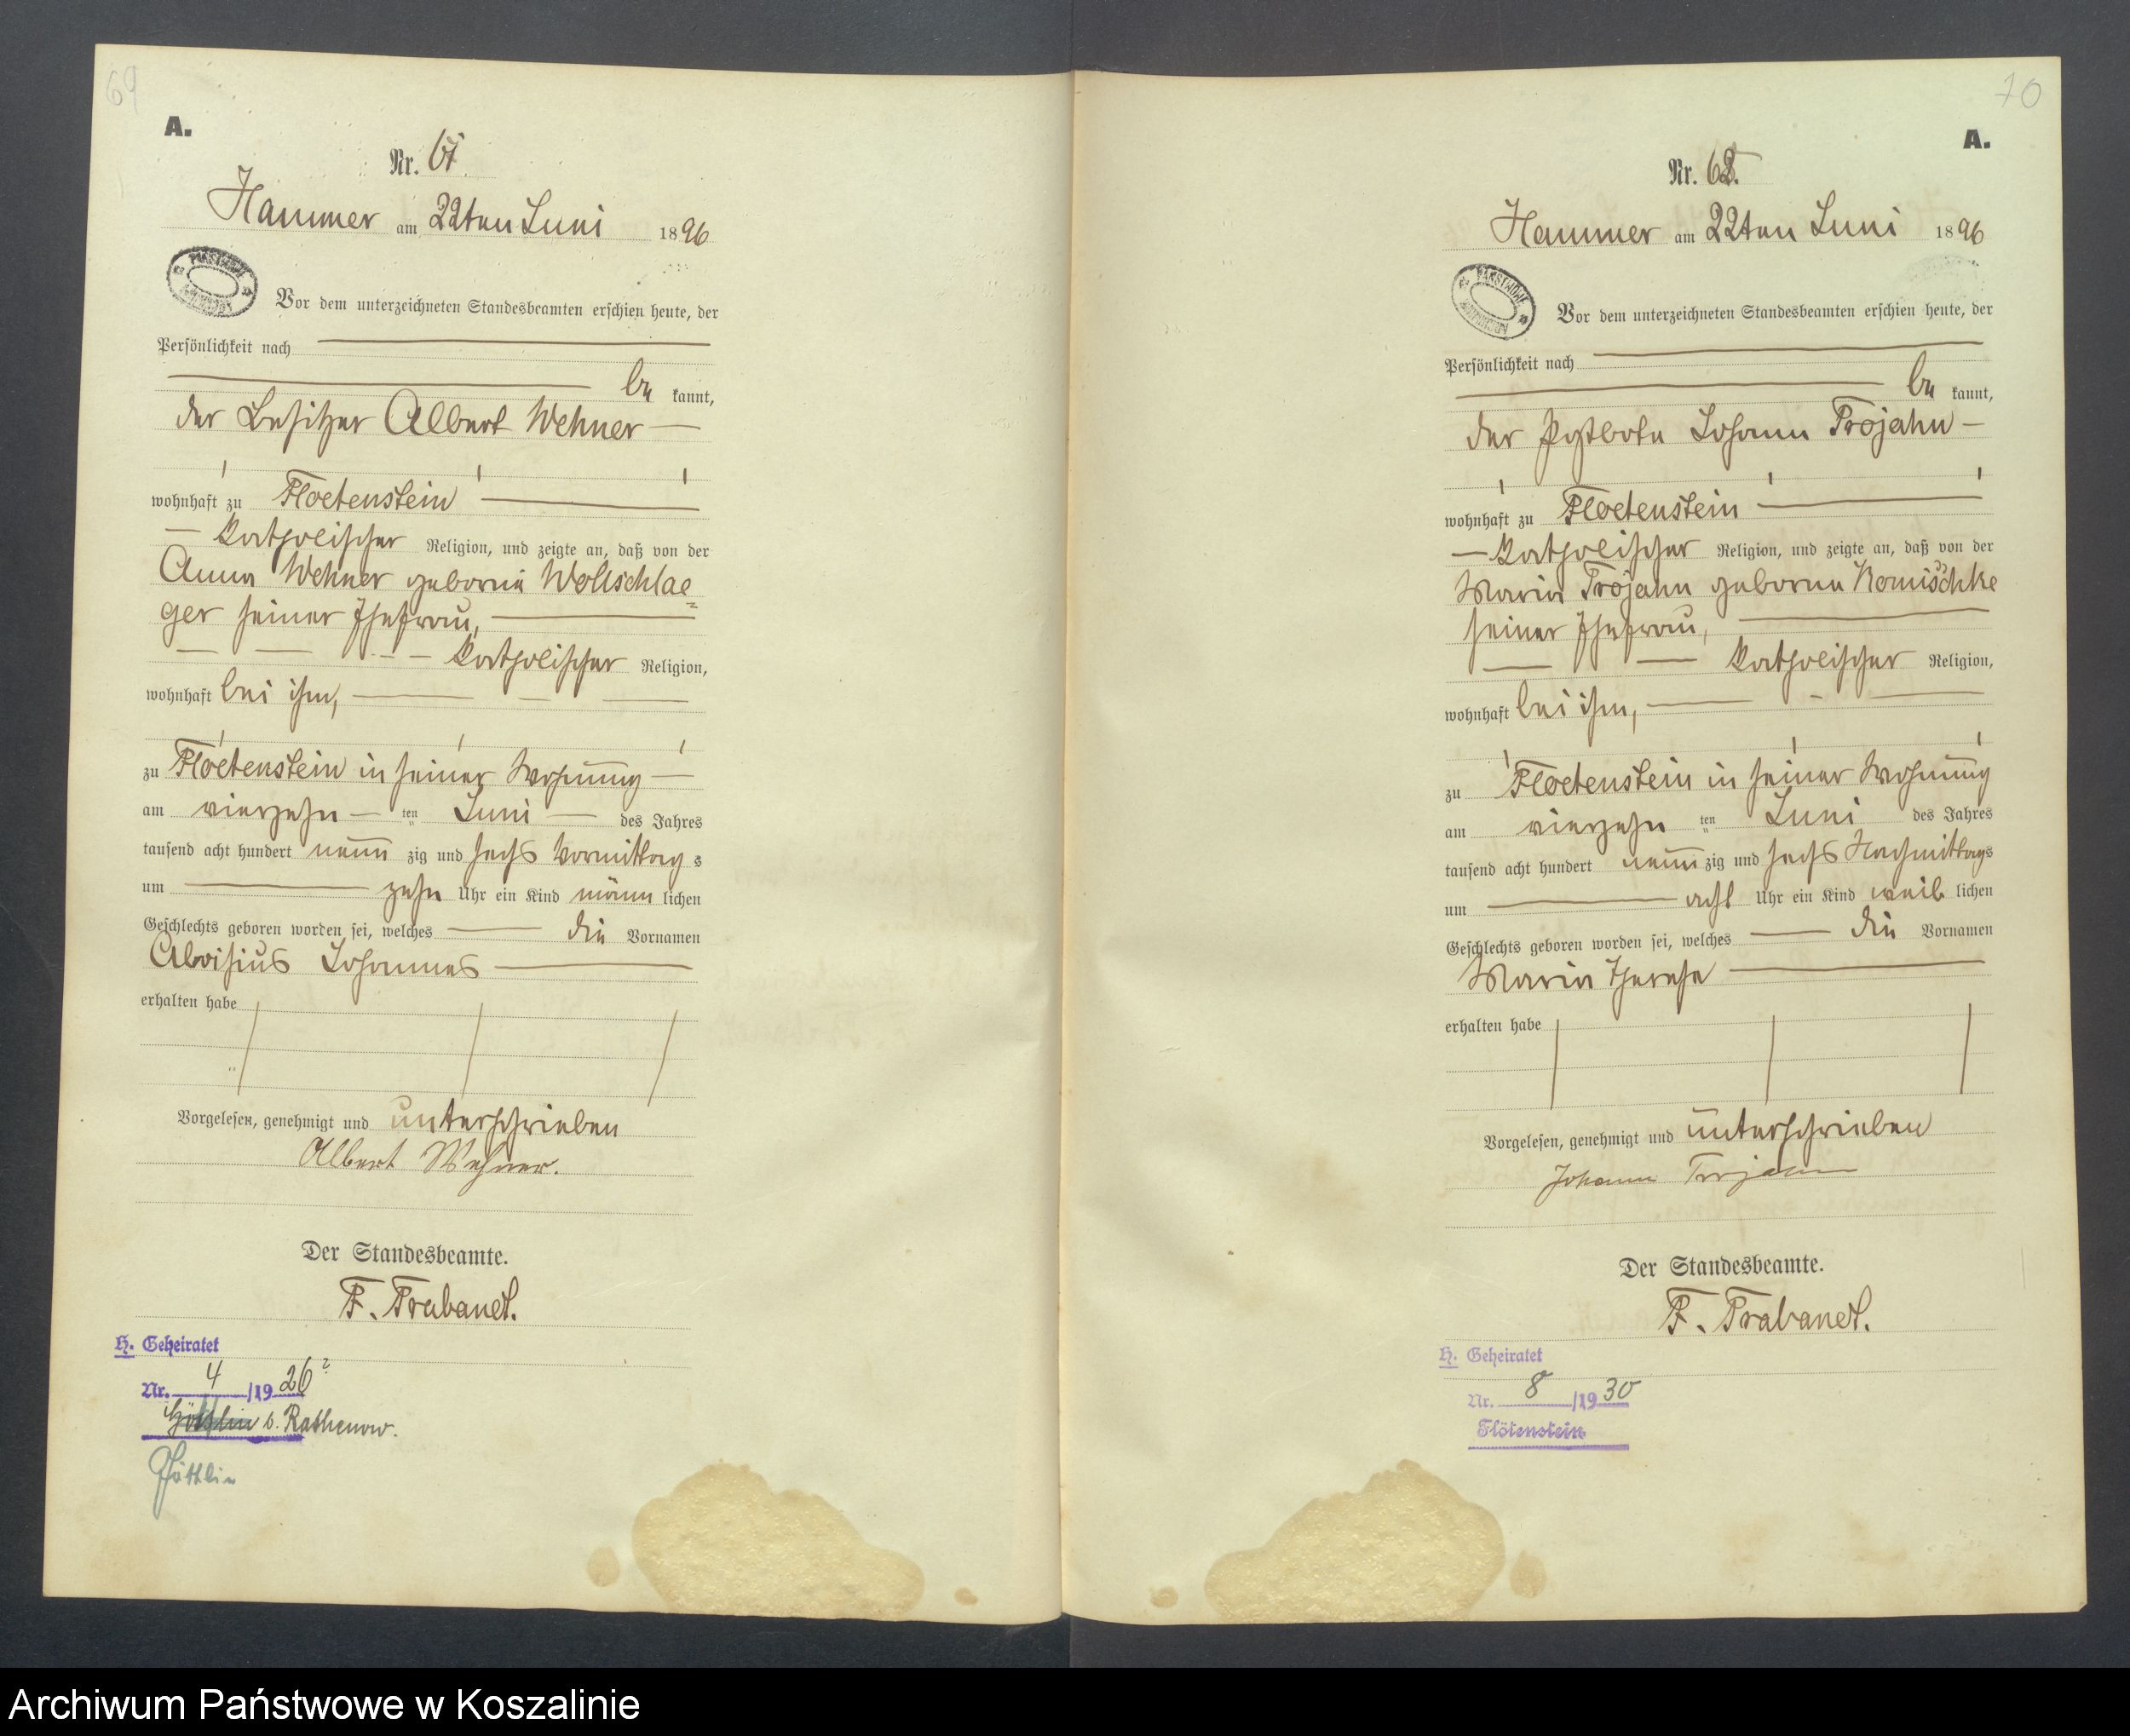 69
A.
Nr. 61.
Hammer am 22ten Juni 1896
Vor dem unterzeichneten Standesbeamten erschien heute, der
Persönlichkeit nach
be kannt,
der Besitzer Albert Wehner
wohnhaft zu Floetenstein
katholischer Religion, und zeigte an, daß von der
Anna Wehner geborne Wollschlae=
ger seiner Ehefrau,
katholischer Religion,
wohnhaft bei ihm,
zu Floetenstein in seiner Wohnung
am vierzehn ten Juni des Jahres
tausend acht hundert neun zig und sechs Vormittag s
um zehn Uhr ein Kind männ lichen
Geschlechts geboren worden sei, welches die Vornamen
Aloisius Johannes
erhalten habe
Vorgelesen, genehmigt und unterschrieben
Albert Wehner.
Der Standesbeamte.
F. Trabandt.
H. Geheiratet
Nr. 4 /1926?
b. Rathenow.
70
A.
Nr. 62.
Hammer am 22ten Juni 1896
PAŃSTWOWE
Vor dem unterzeichneten Standesbeamten erschien heute, der
Persönlichkeit nach
be kannt,
der Postbote Johann Trojahn
wohnhaft zu Floetenstein
katholischer Religion, und zeigte an, daß von der
Maria Trojahn geborne Komischke
seiner Ehefrau,
katholischer Religion,
wohnhaft bei ihm,
zu Floetenstein in seiner Wohnung
am vierzehn ten Juni des Jahres
tausend acht hundert neun zig und sechs Nachmittags
um acht Uhr ein Kind weib lichen
Geschlechts geboren worden sei, welches die Vornamen
Maria Therese
erhalten habe
Vorgelesen, genehmigt und unterschrieben
Johann Trojahn
Der Standesbeamte.
F. Trabandt.
H. Geheiratet
Nr. 8 /1930
Flötenstein
Archiwum Państwowe w Koszalinie